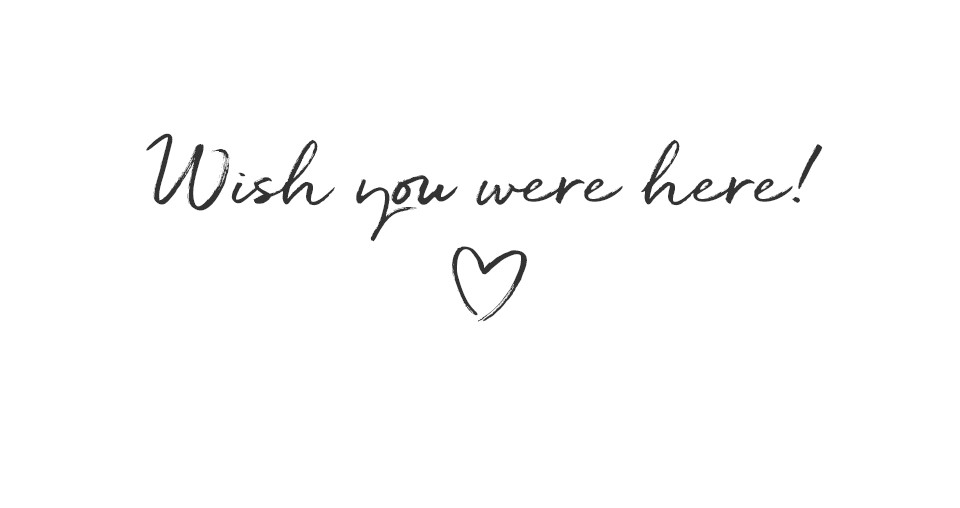 Wish you were here!